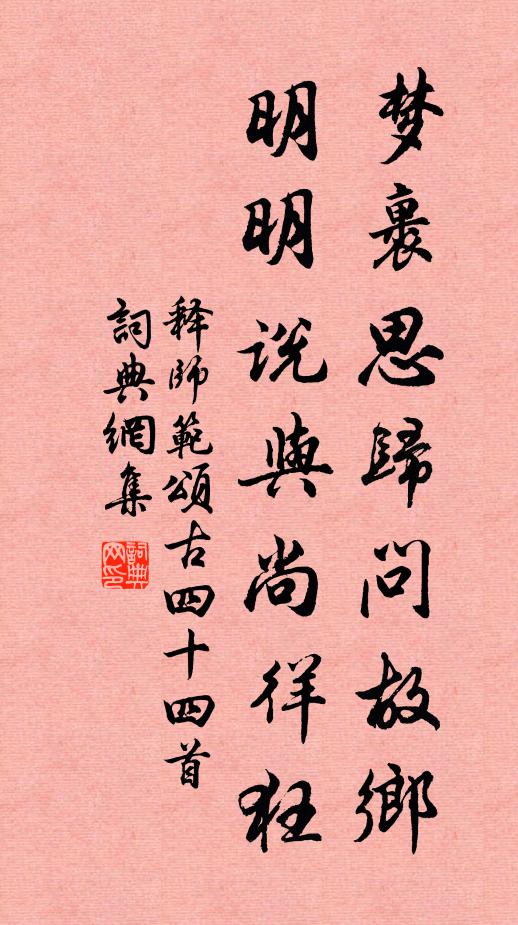 梦裏思歸问故鄉
明明说與尚徉狂
释師範頌古四十四首
詞典網集
詞典網印